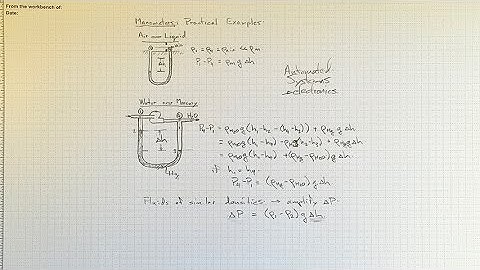 From the workbench of:
Date:
Manometers: Practical Examples
Air over Liquid
air
ρ₁ = ρ₂ = ρair << ρm
P₁ - P₂ = ρm g Δh
Δh
Antiquated
Systems
electronics
Water over Mercury
H₂O
Δh
Hg
P₄-P₁ = ρH₂O g(h₁-h₂ - (h₄-h₃)) + ρHg g Δh
= ρH₂O g(h₁-h₄) - ρH₂O g(h₂-h₃) + ρHg g Δh
= ρH₂O g(h₁-h₄) + (ρHg - ρH₂O) g Δh
if h₁ = h₄
P₄-P₁ = (ρHg - ρH₂O) g Δh
Fluids of similar densities → amplify ΔP
ΔP = (ρ₁-ρ₂) g Δh